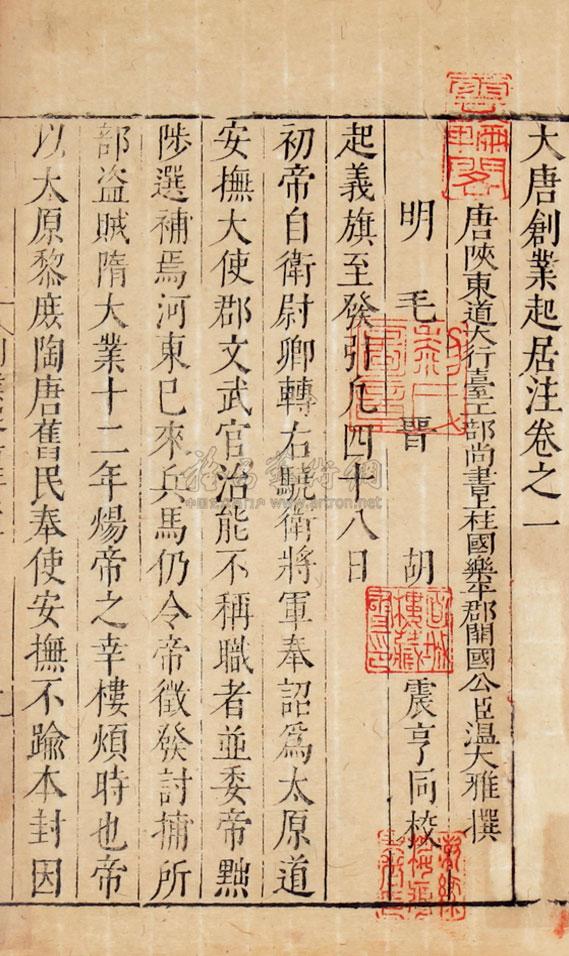 大唐創業起居注卷之一
唐陝東道大行臺工部尚書上柱國樂平郡開國公臣溫大雅撰
明 毛晉 胡震亨同校
起義旗至發引凡四十八日
初帝自衛尉卿轉右驍衛將軍奉詔為太原道
安撫大使郡文武官治能不稱職者並委帝黜
陟選補焉河東已來兵馬仍令帝徵發討捕所
部盜賊隋大業十二年煬帝之幸樓煩時也帝
以太原黎庶陶唐舊民奉使安撫不踰本封因